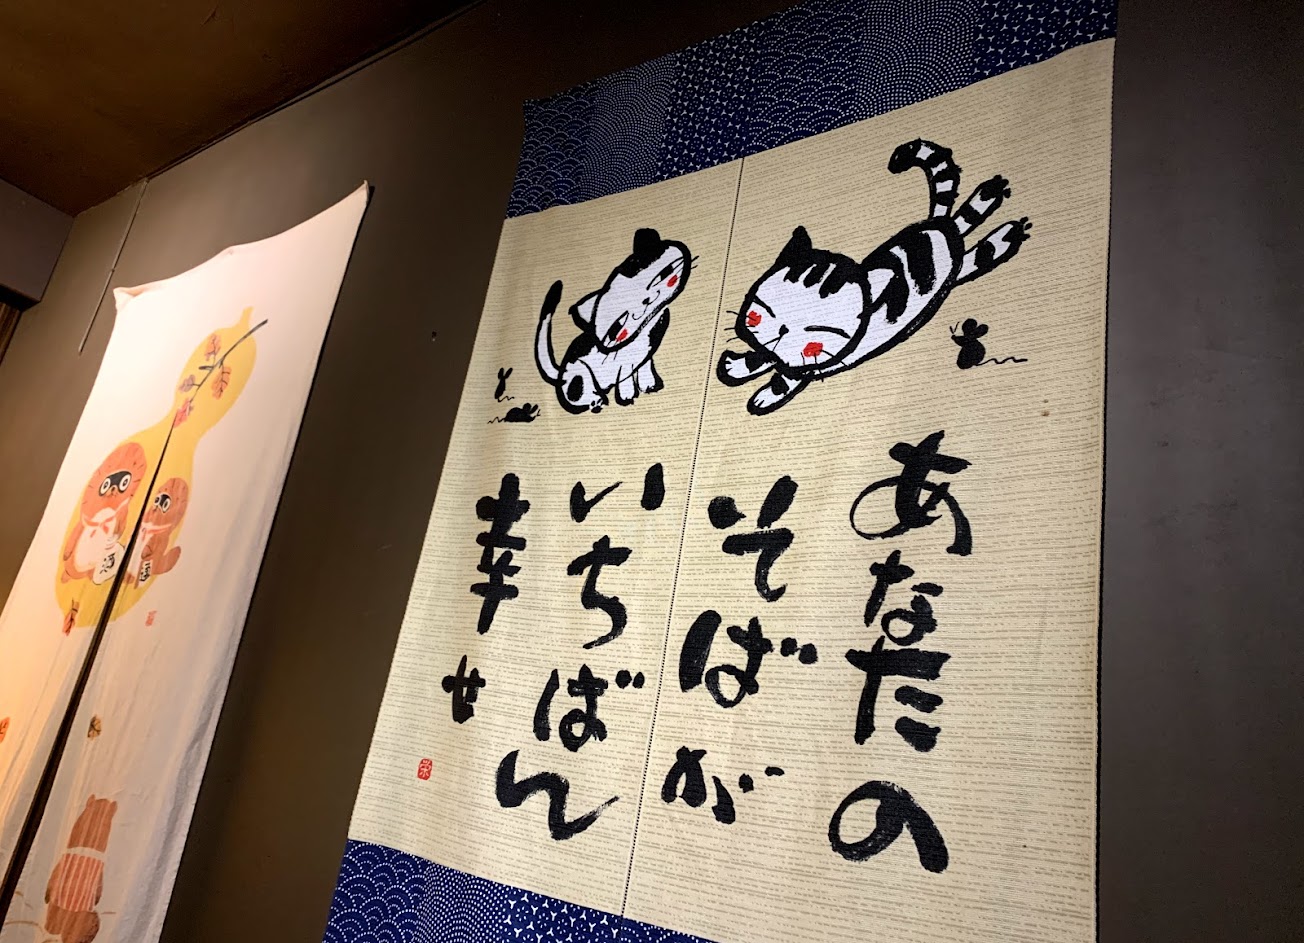 あなたの
そばが
いちばん
幸せ
酒
酒